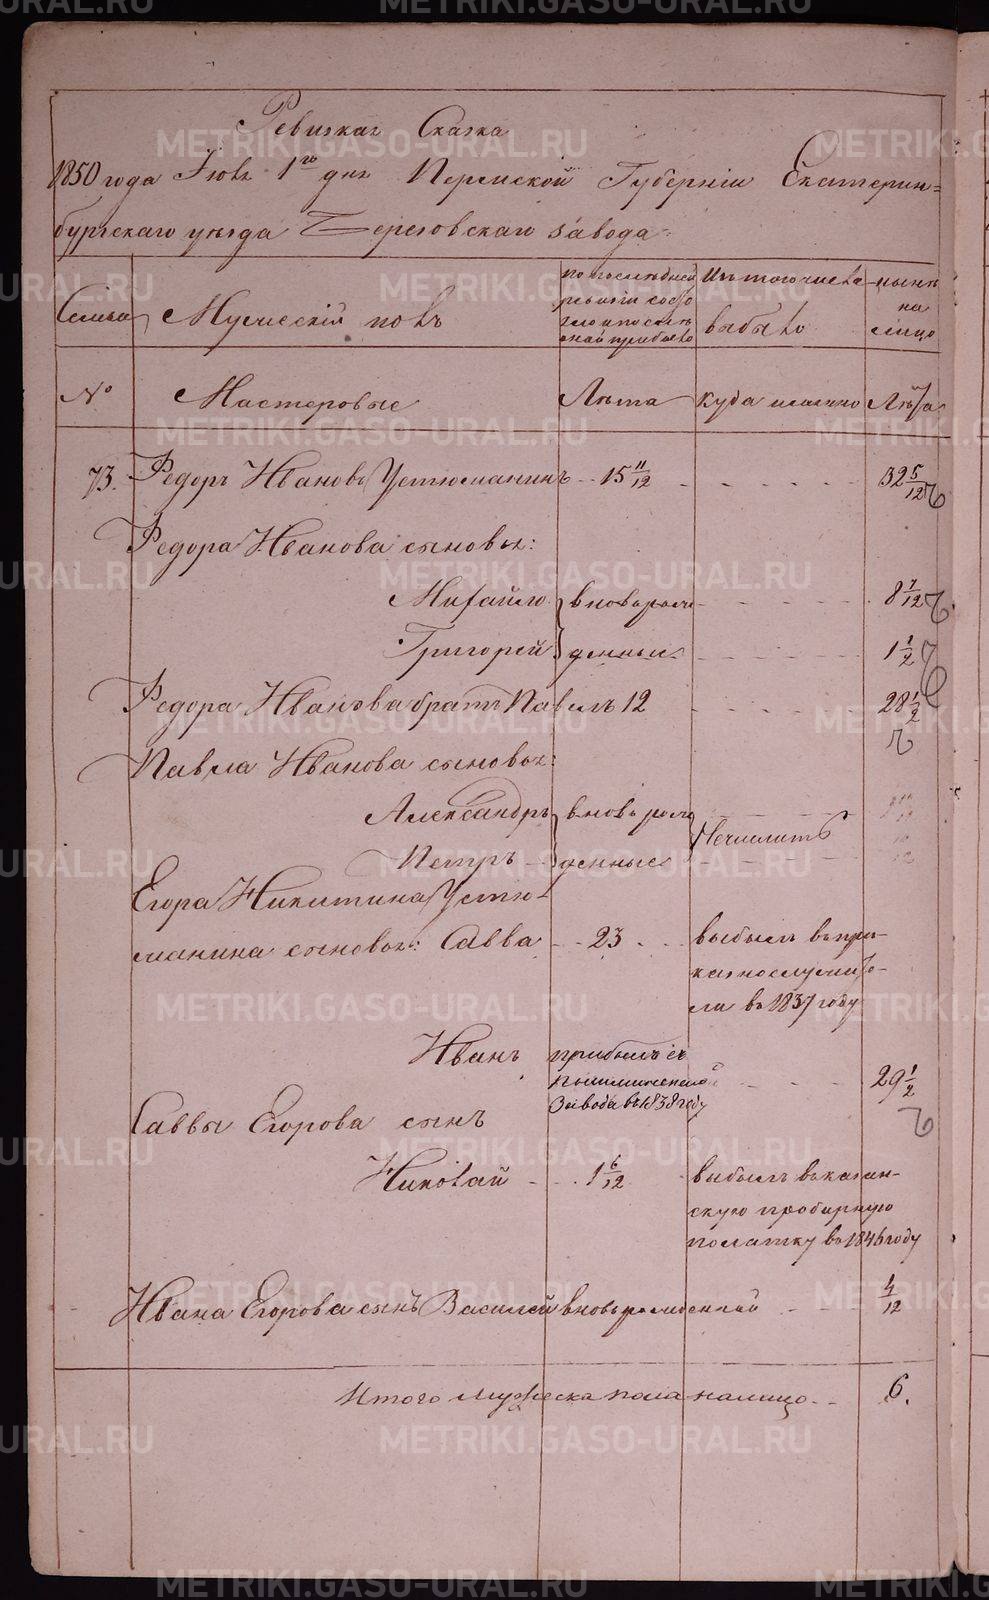 Ревизкая Сказка
1850 года Июля 1го дня Пермской Губернiи Екатерин=
бургскаго уѣзда Березовскаго завода
Семьи
Мужескiй полъ
по последней ревизiи состояло и после оной прибыло
Изъ того числа выбыло
ныне на лицо
№
Мастеровые
Лѣта
Куда именно
Лѣта
73. Федоръ Ивановъ Устюманинъ 15 11/12 32 5/12
Федора Иванова сыновья:
Михайло вновь рож- 8 7/12
Григорей денные 1 1/2
Федора Иванова братъ Павелъ 12 28 1/2
Павла Иванова сыновья:
Александръ вновь рож
Петръ денные Нечислить
Егора Никитина Устю-
манина сыновья: Савва 23 выбылъ въ при-
казнослужите-
ли въ 1837 году
Иванъ прибылъ съ
Пышминскаго 29 1/2
Завода въ 1838 году
Саввы Егорова сынъ
Николай 1 6/12 выбылъ въ казан-
скую пробирную
полатку въ 1846 году
Ивана Егорова сынъ Василей вновь рожденной 4/12
Итого мужеска пола на лицо 6.
METRIKI.GASO-URAL.RU